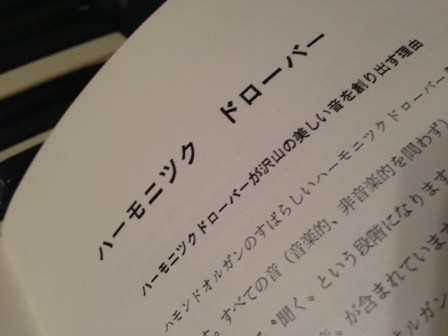 ハーモニツク ドローバー
ハーモニツクドローバーが沢山の美しい音を創り出す理由
ハモンドオルガンのすばらしいハーモニツクドローバー
す。すべての音（音楽的、非音楽的を問わず）
〝聞く〟という段階になります
〝音〟が含まれています
オルガン